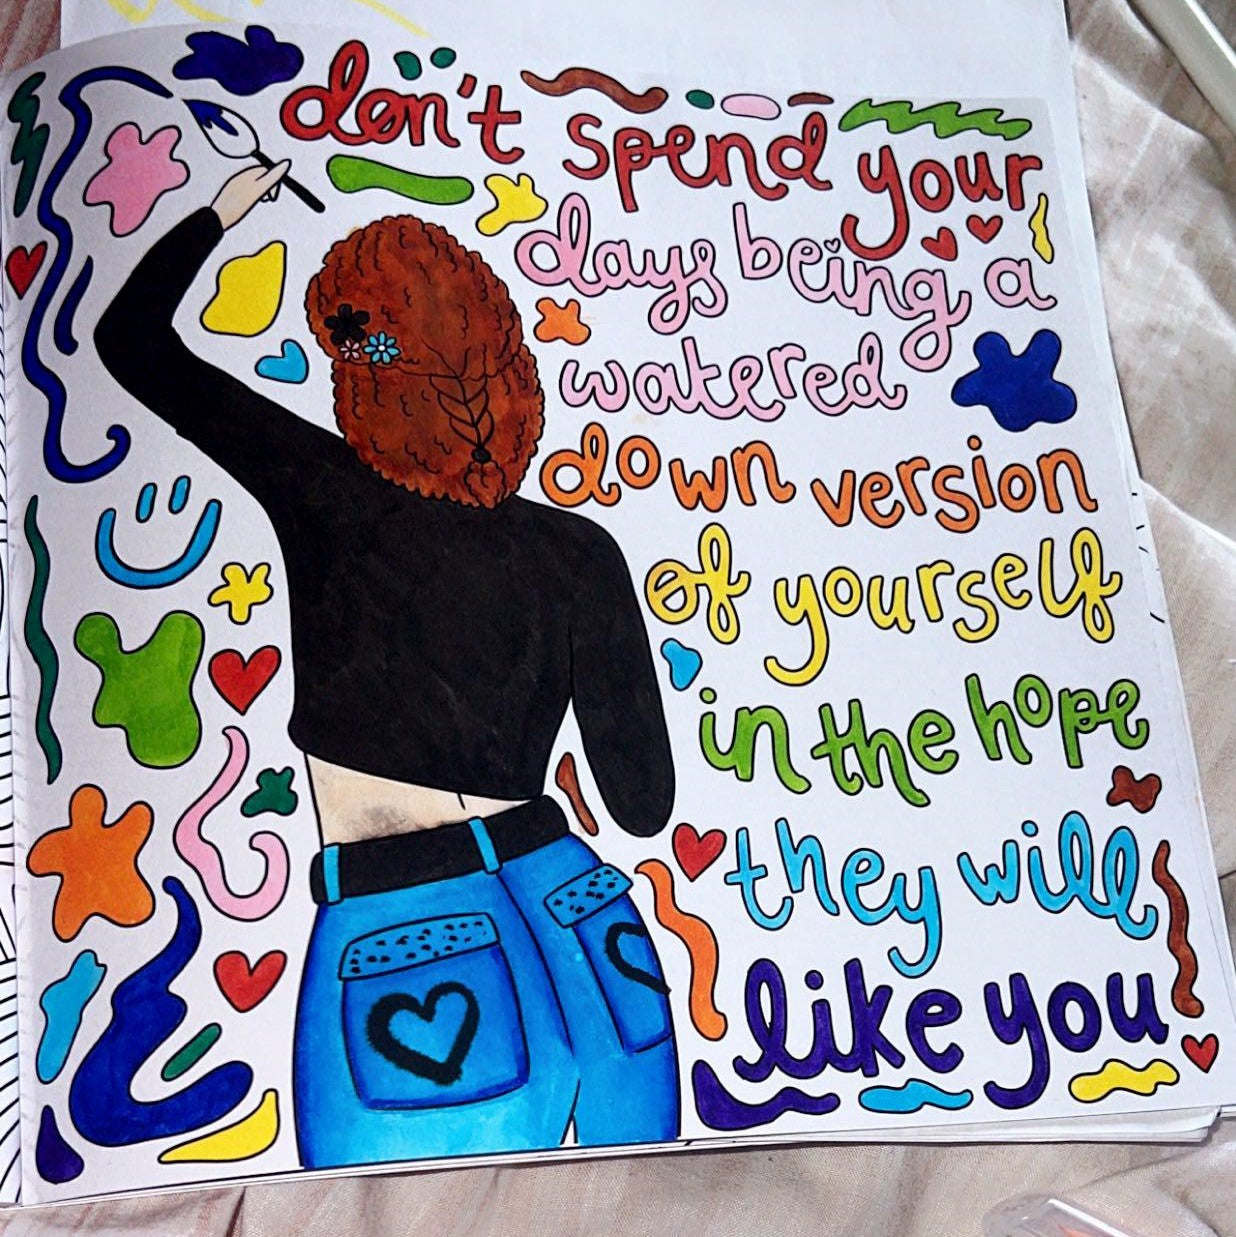 don't spend your
days being a
watered
down version
of yourself
in the hope
they will
like you